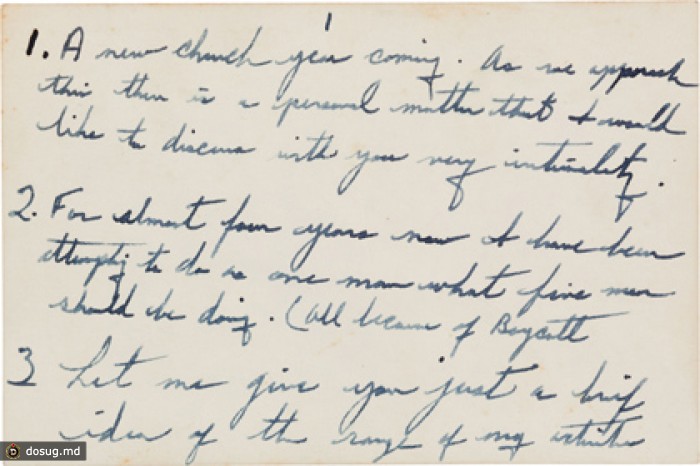 1
1. A new church year coming. As we approach
this there is a personal matter that I would
like to discuss with you very intimately.
2. For almost four years now I have been
attempting to do as one man what five men
should be doing. (All because of Boycott
3 Let me give you just a brief
idea of the range of my activities
dosug.md